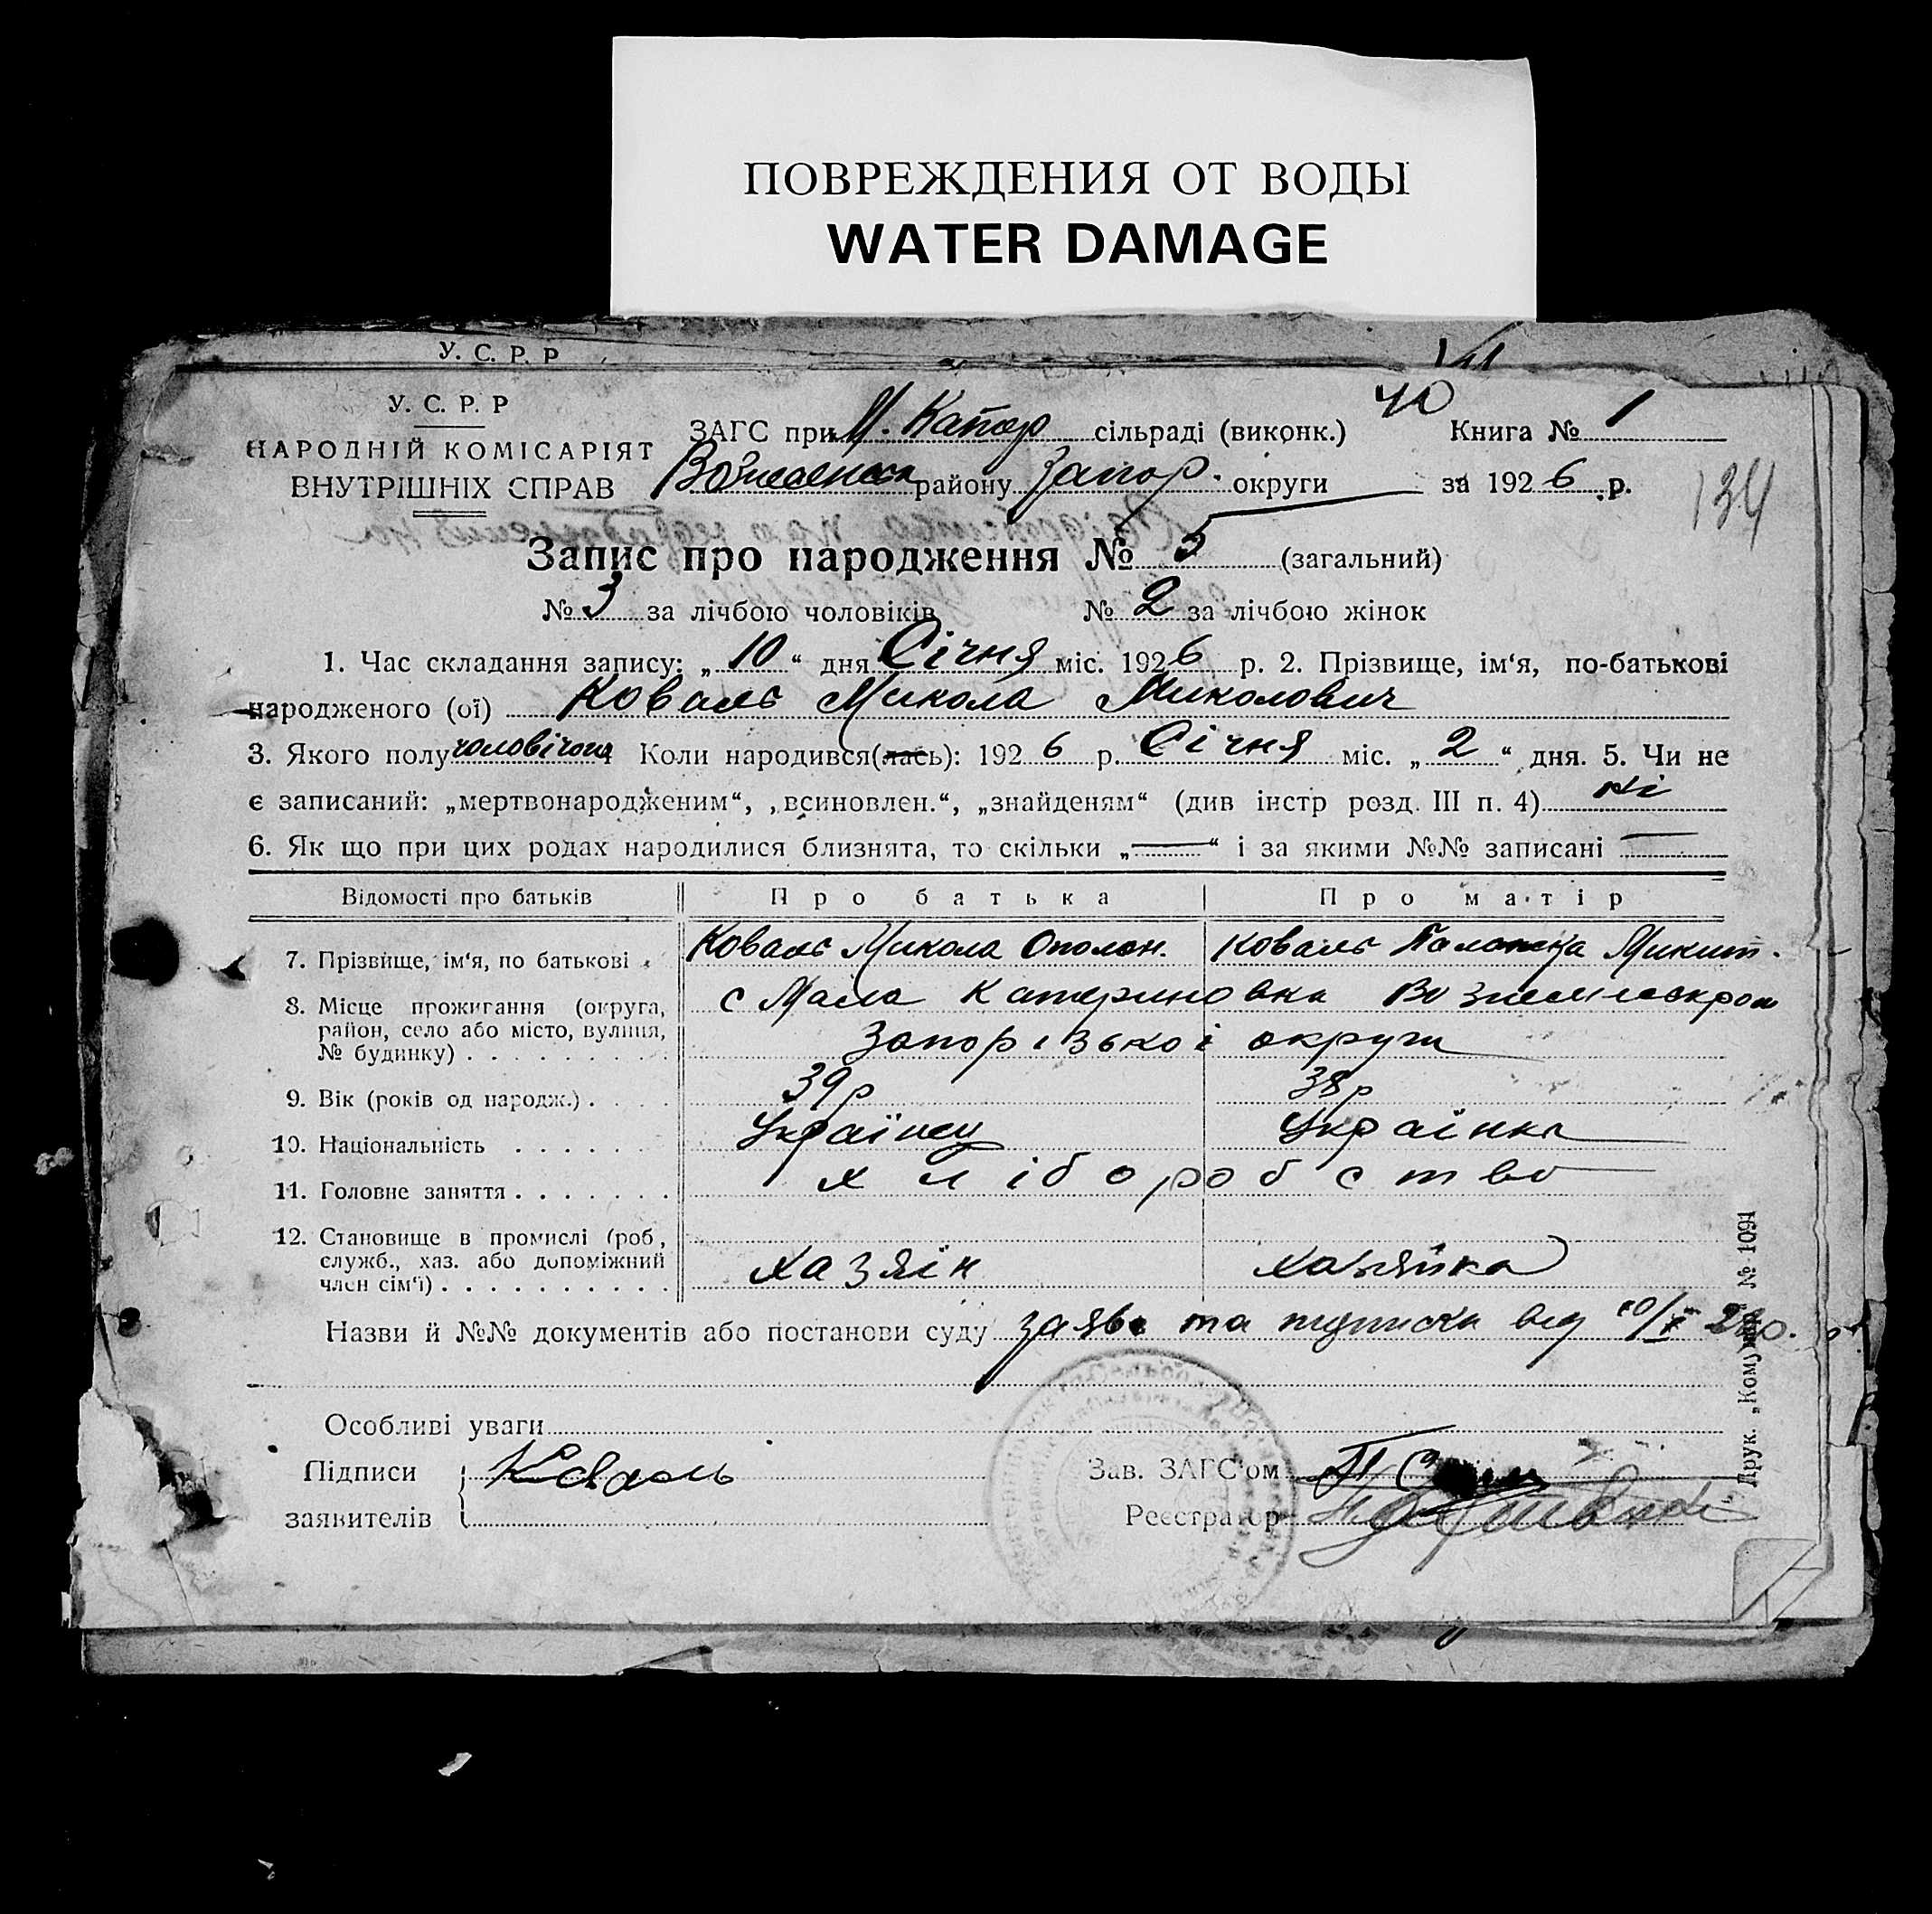 ПОВРЕЖДЕНИЯ ОТ ВОДЫ
WATER DAMAGE
У. С. Р. Р
У. С. Р. Р
НАРОДНІЙ КОМІСАРІЯТ
ВНУТРІШНІХ СПРАВ
40
ЗАГС при М. Катер сільраді (виконк.) Книга № 1
Вознесенськ району Запор. округи за 1926 р.
134
Запис про народження № 5 (загальний)
№ 3 за лічбою чоловіків № 2 за лічбою жінок
1. Час складання запису: „10“ дня Січня міс. 1926 р. 2. Прізвище, ім‘я, по-батькові
народженого (ої) Коваль Микола Миколович
3. Якого полу чоловічого 4 Коли народився(лась): 1926 р. Січня міс. „2“ дня. 5. Чи не
є записаний: „мертвонародженим“, „всиновлен.“, „знайденям“ (див інстр розд. III п. 4) ні
6. Як що при цих родах народилися близнята, то скільки „—“ і за якими №№ записані —
Відомості про батьків Про батька Про матір
7. Прізвище, ім‘я, по батькові Коваль Микола Ополон. Коваль Палажка Микит.
8. Місце прожигання (округа, район, село або місто, вулиця, № будинку) с Мала Катериновка
Запорізької округи
9. Вік (років од народж.) 39р 38р
10. Національність Українец Українка
11. Головне заняття хліборобство
12. Становище в промислі (роб, служб., хаз. або допоміжний член сім‘ї) хазяїн хазяйка
Назви й №№ документів або постанови суду заява та підписка від 10/I 26р.
Особливі уваги
Підписи Коваль Зав. ЗАГС‘ом
заявителів Реєстратор
Друк. „Комунар“ № 1091